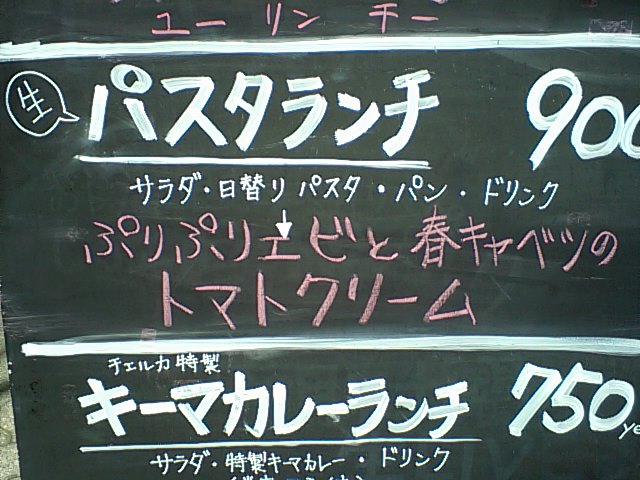 ユーリンチー
生 パスタランチ 900
サラダ・日替りパスタ・パン・ドリンク
ぷりぷりエビと春キャベツの
トマトクリーム
チェルカ特製
キーマカレーランチ 750 ye
サラダ・特製キーマカレー・ドリンク